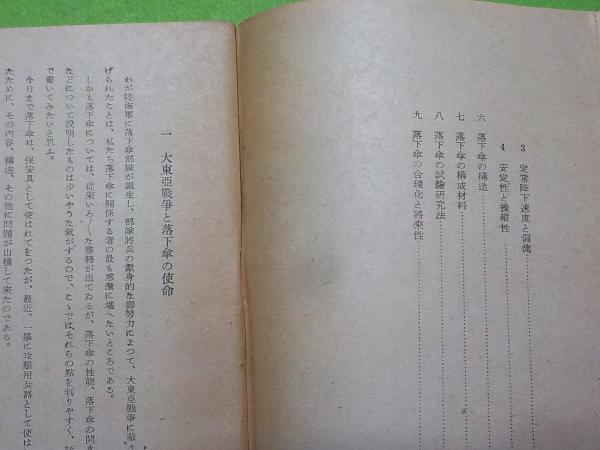 3 定常降下速度と偏流
4 安定性と操縱性
六 落下傘の構造
七 落下傘の構成材料
八 落下傘の試驗研究法
九 落下傘の合理化と將來性
一 大東亞戰爭と落下傘の使命
わが陸海軍に落下傘部隊が誕生し、部隊將兵の獻身的な御努力によつて、大東亞戰爭に華
げられたことは、私たち落下傘に關係する者の最も感激に堪へないところである。
しかも落下傘については、從來いろ〳〵な書籍が出てゐるが、落下傘の性能、落下傘の開
などについて說明したものは少いやうな氣がするので、こゝではそれらの點を判りやすく、
で書いてみたいと思ふ。
今日まで落下傘は、保安具として使はれてをつたが、最近、一擧に攻擊用兵器として使は
たために、その內容、構造、その他に問題が山積して來たのである。